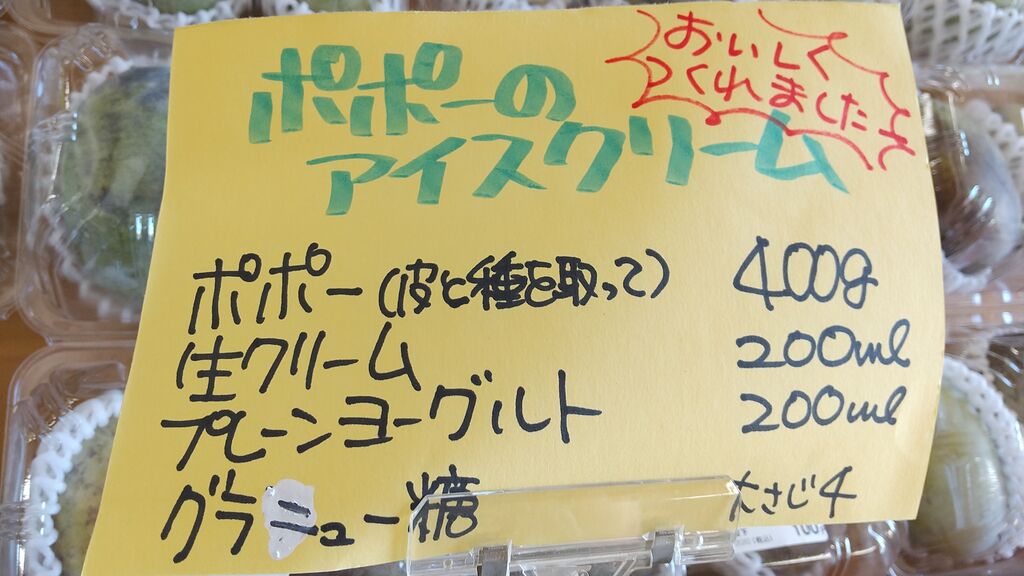 おいしく
つくれました
ポポーの
アイスクリーム
ポポー(皮と種を取って) 400g
生クリーム 200ml
プレーンヨーグルト 200ml
グラニュー糖 大さじ4
100